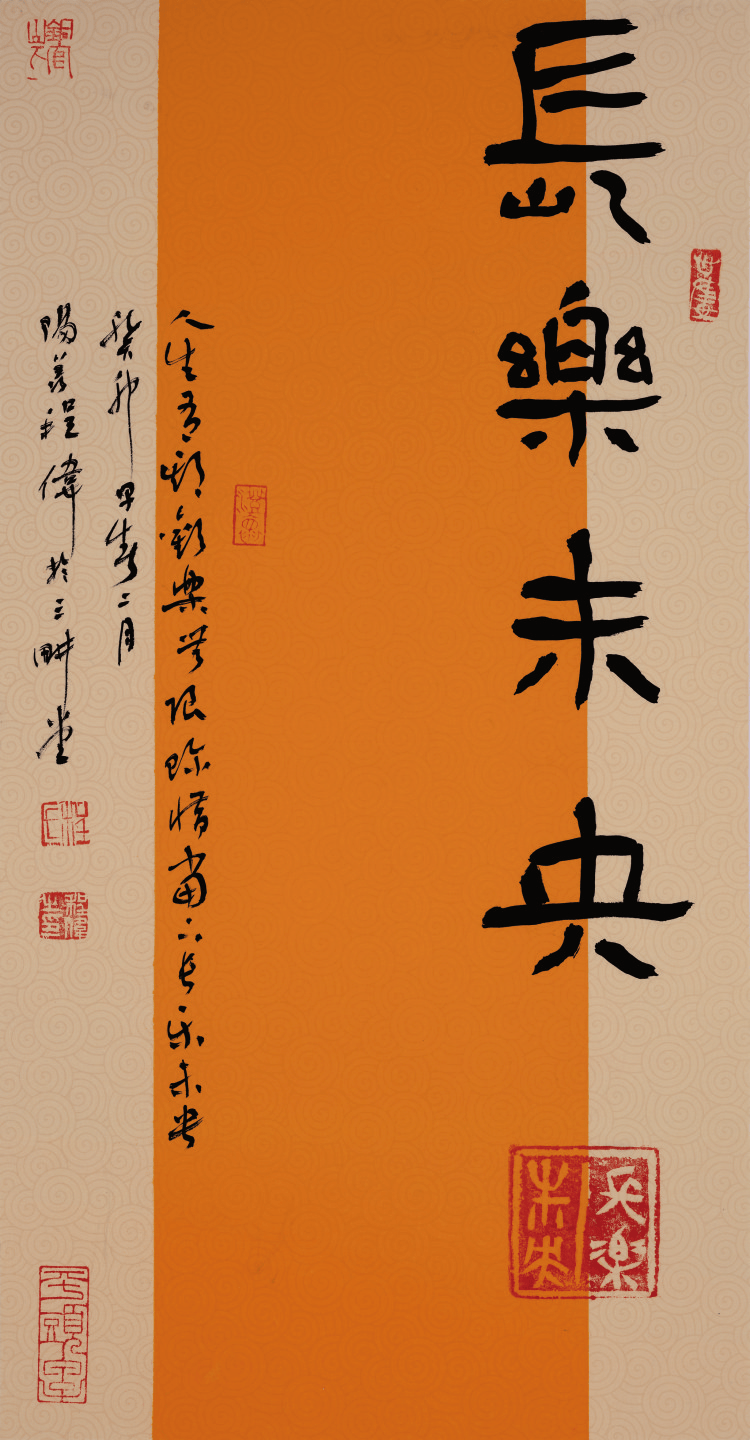 長樂未央
長樂未央
人生歡樂無限珍惜當下長樂未央
癸卯早春二月
陽羨程偉於三畊堂